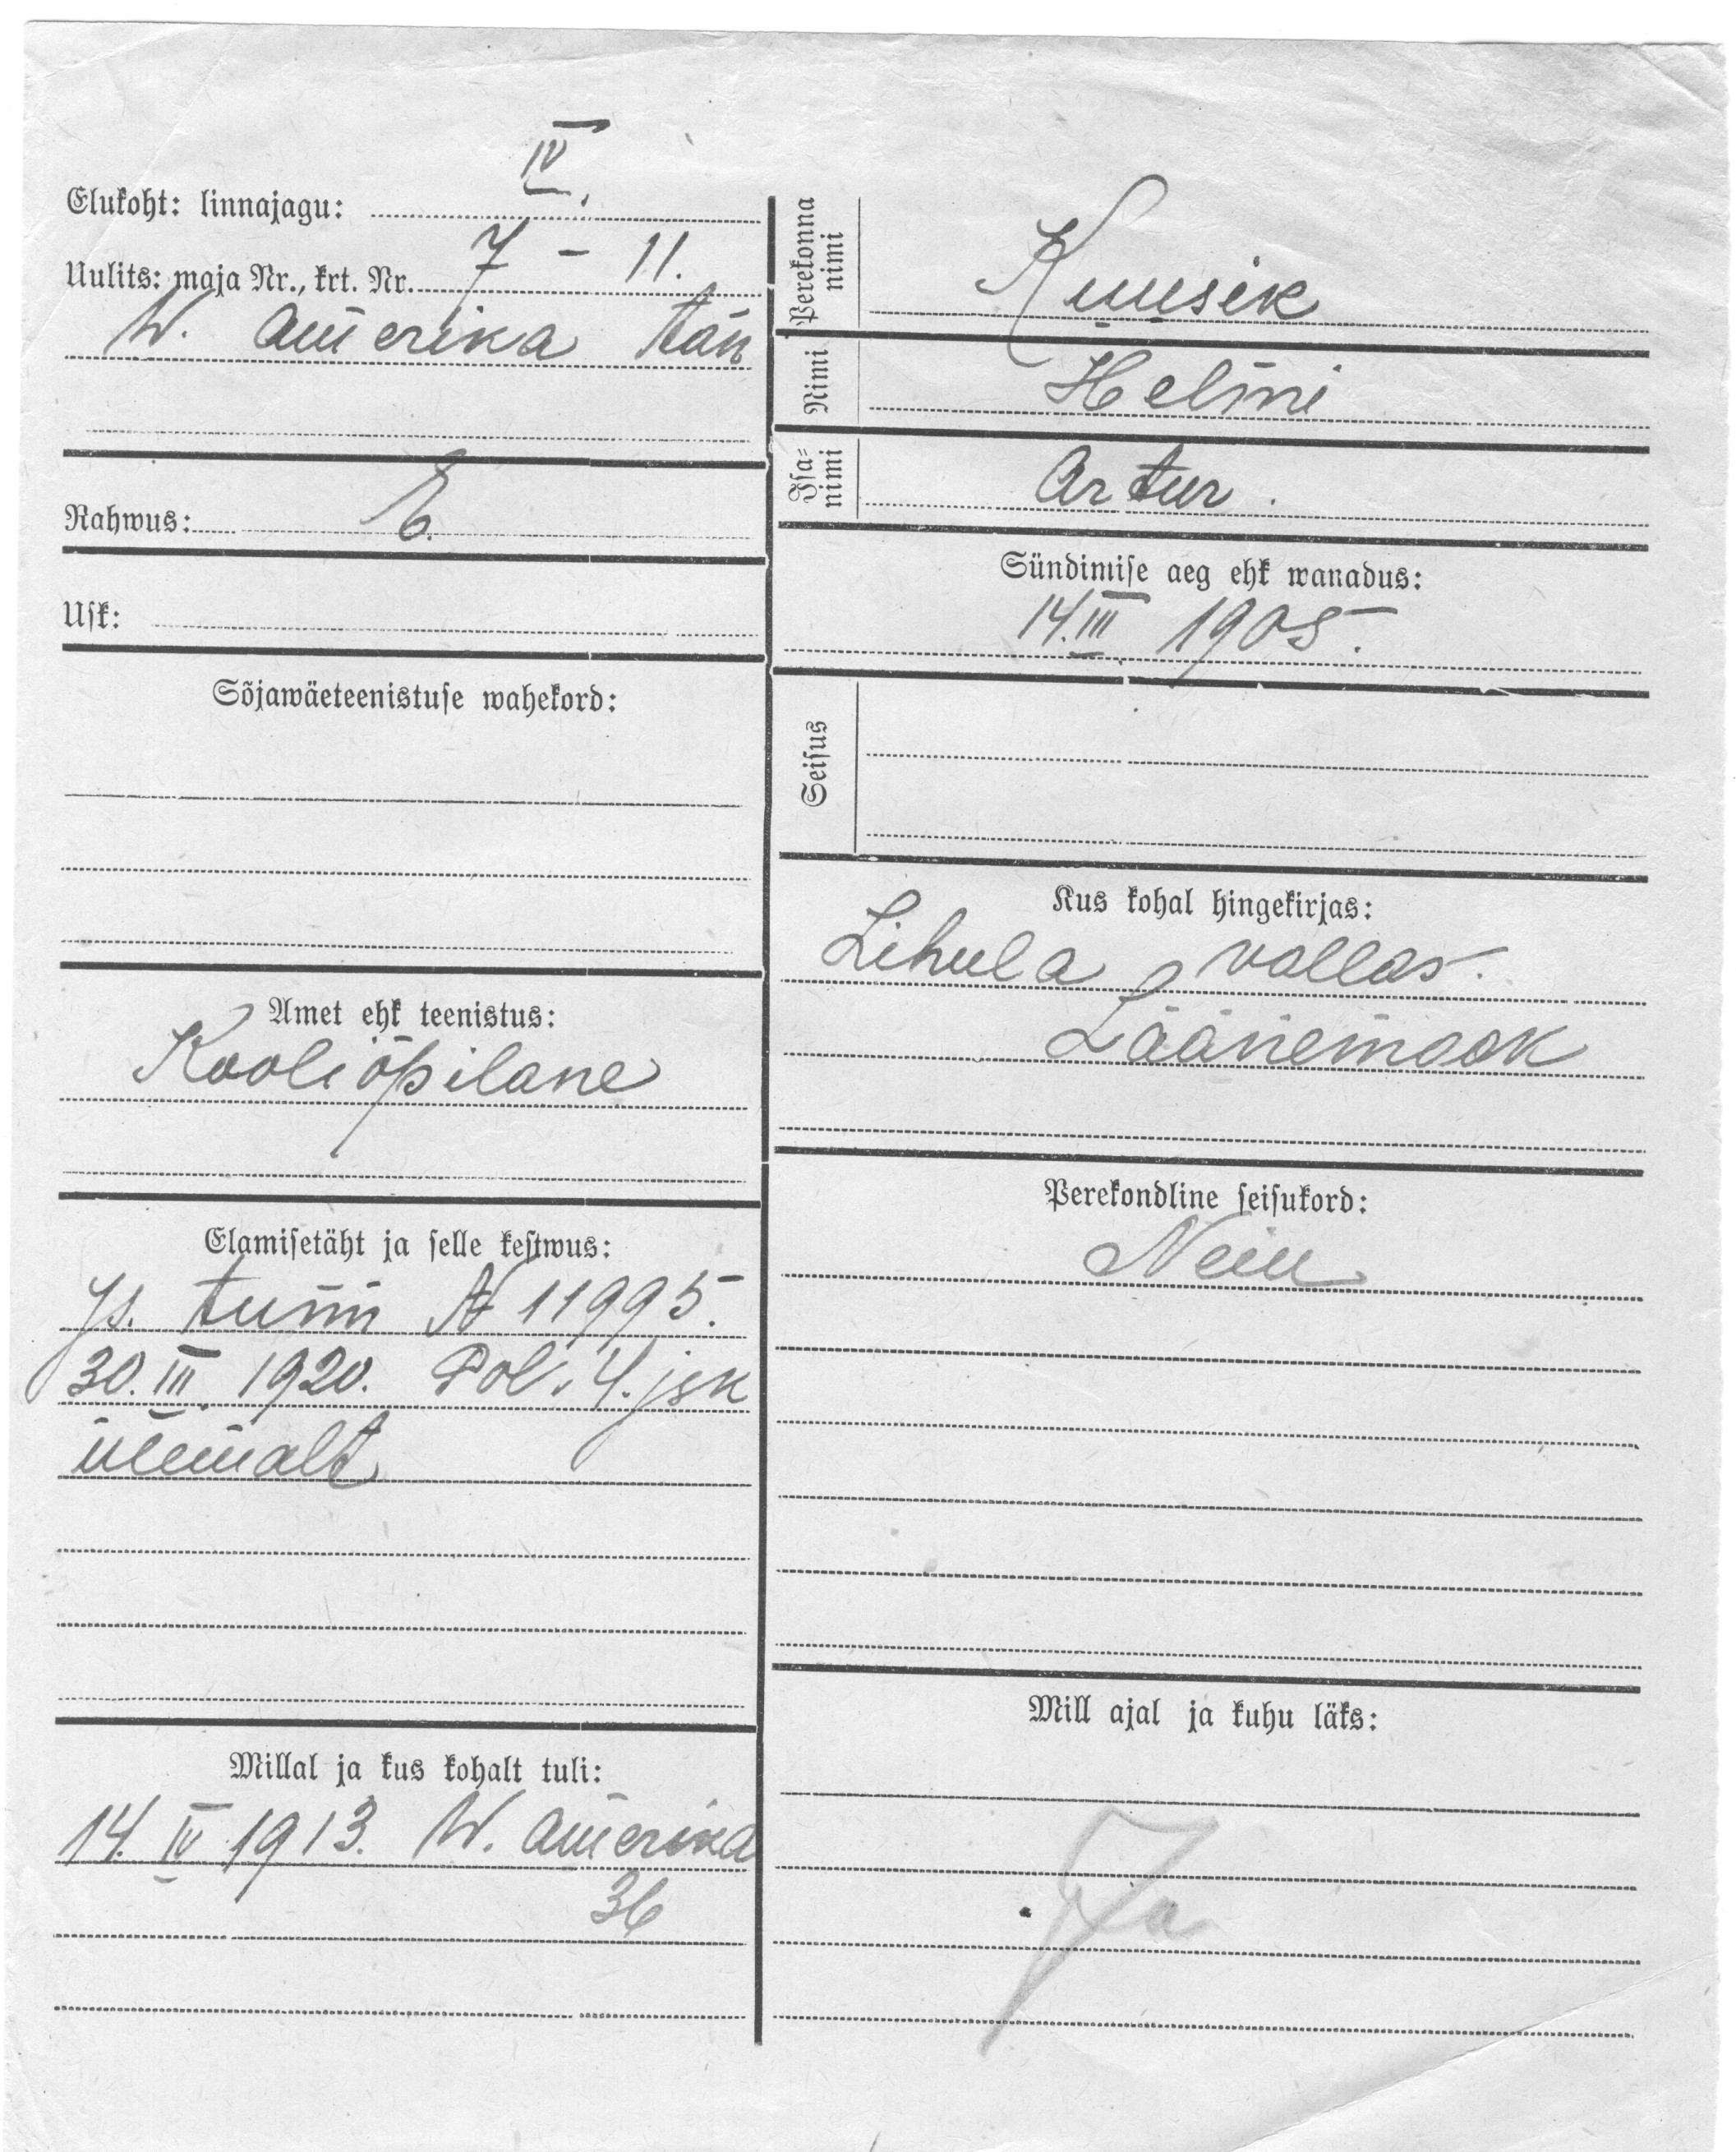 IV.
Elukoht: linnajagu:
Uulits: maja Nr., krt. Nr. 7 – 11.
W. Amerika tän
Rahwus: E.
Usk:
Sõjawäeteenistuse wahekord:
Amet ehk teenistus:
Kooliõpilane
Elamisetäht ja selle kestwus:
Is. tunn № 11995.
30. III 1920. Pol. 4. jsk
ülemalt
Millal ja kus kohalt tuli:
14. IV 1913. W. Amerika
36
Perekonna nimi Kuusik
Nimi Helmi
Isa-nimi Artur.
Sündimise aeg ehk wanadus:
14. III 1905.
Seisus
Kus kohal hingekirjas:
Lihula vallas.
Läänemaak
Perekondline seisukord:
Neiu
Mill ajal ja kuhu läks:
Ja